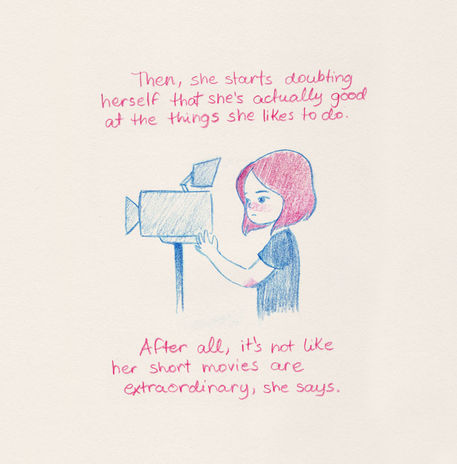 Then, she starts doubting
herself that she's actually good
at the things she likes to do.
After all, it's not like
her short movies are
extraordinary, she says.